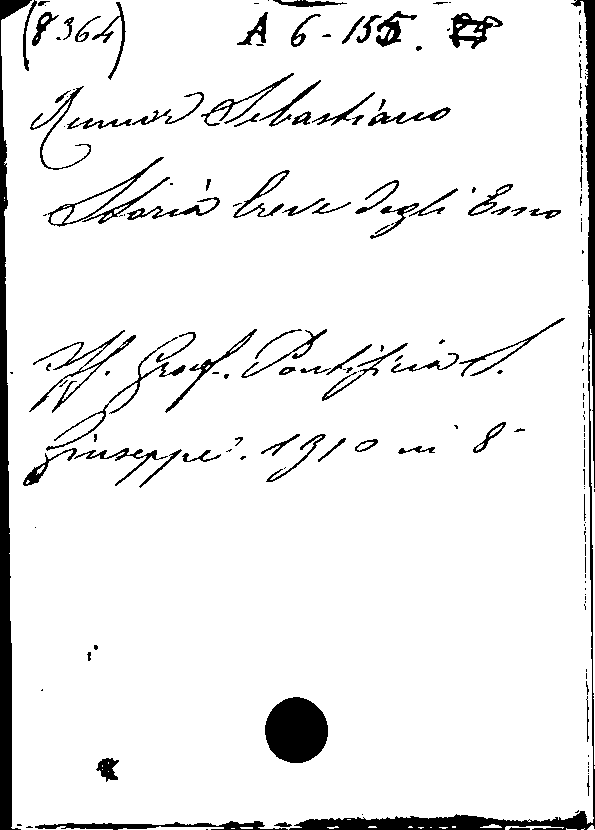 (8364) A 6-155.
Rumor Sebastiano
Storia breve degli Emo
Off. Graf. Pontificia S.
Giuseppe. 1910 in 8°